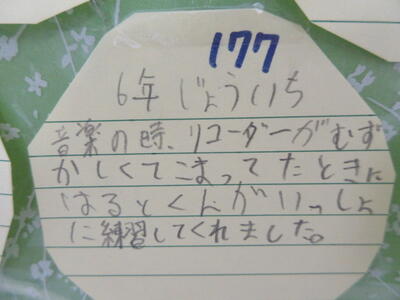 177
6年 じょういち
音楽の時、リコーダーがむず
かしくてこまってたときに
はるとくんがいっしょ
に練習してくれました。